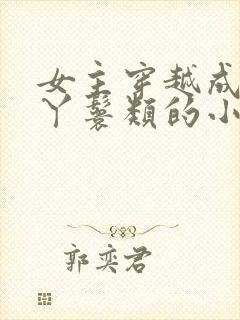 女主穿越成
丫鬟类的小
郭奕君